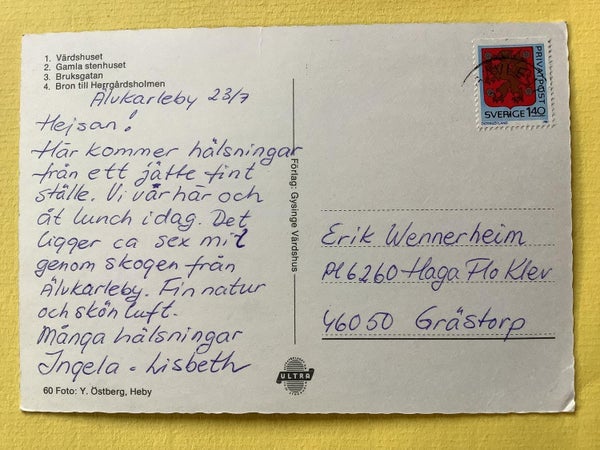 1. Värdshuset
2. Gamla stenhuset
3. Bruksgatan
4. Bron till Herrgårdsholmen
Älvkarleby 23/7
Hejsan!
Här kommer hälsningar
från ett jätte fint
ställe. Vi var här och
åt lunch idag. Det
ligger ca sex mil
genom skogen från
Älvkarleby. Fin natur
och skön luft.
Många hälsningar
Ingela - Lisbeth
60 Foto: Y. Östberg, Heby
Förlag: Gysinge Värdshus
ULTRA
PRIVATPOST
SVERIGE 140
Erik Wennerheim
Pl 6260 Haga Flo Klev
46050 Grästorp